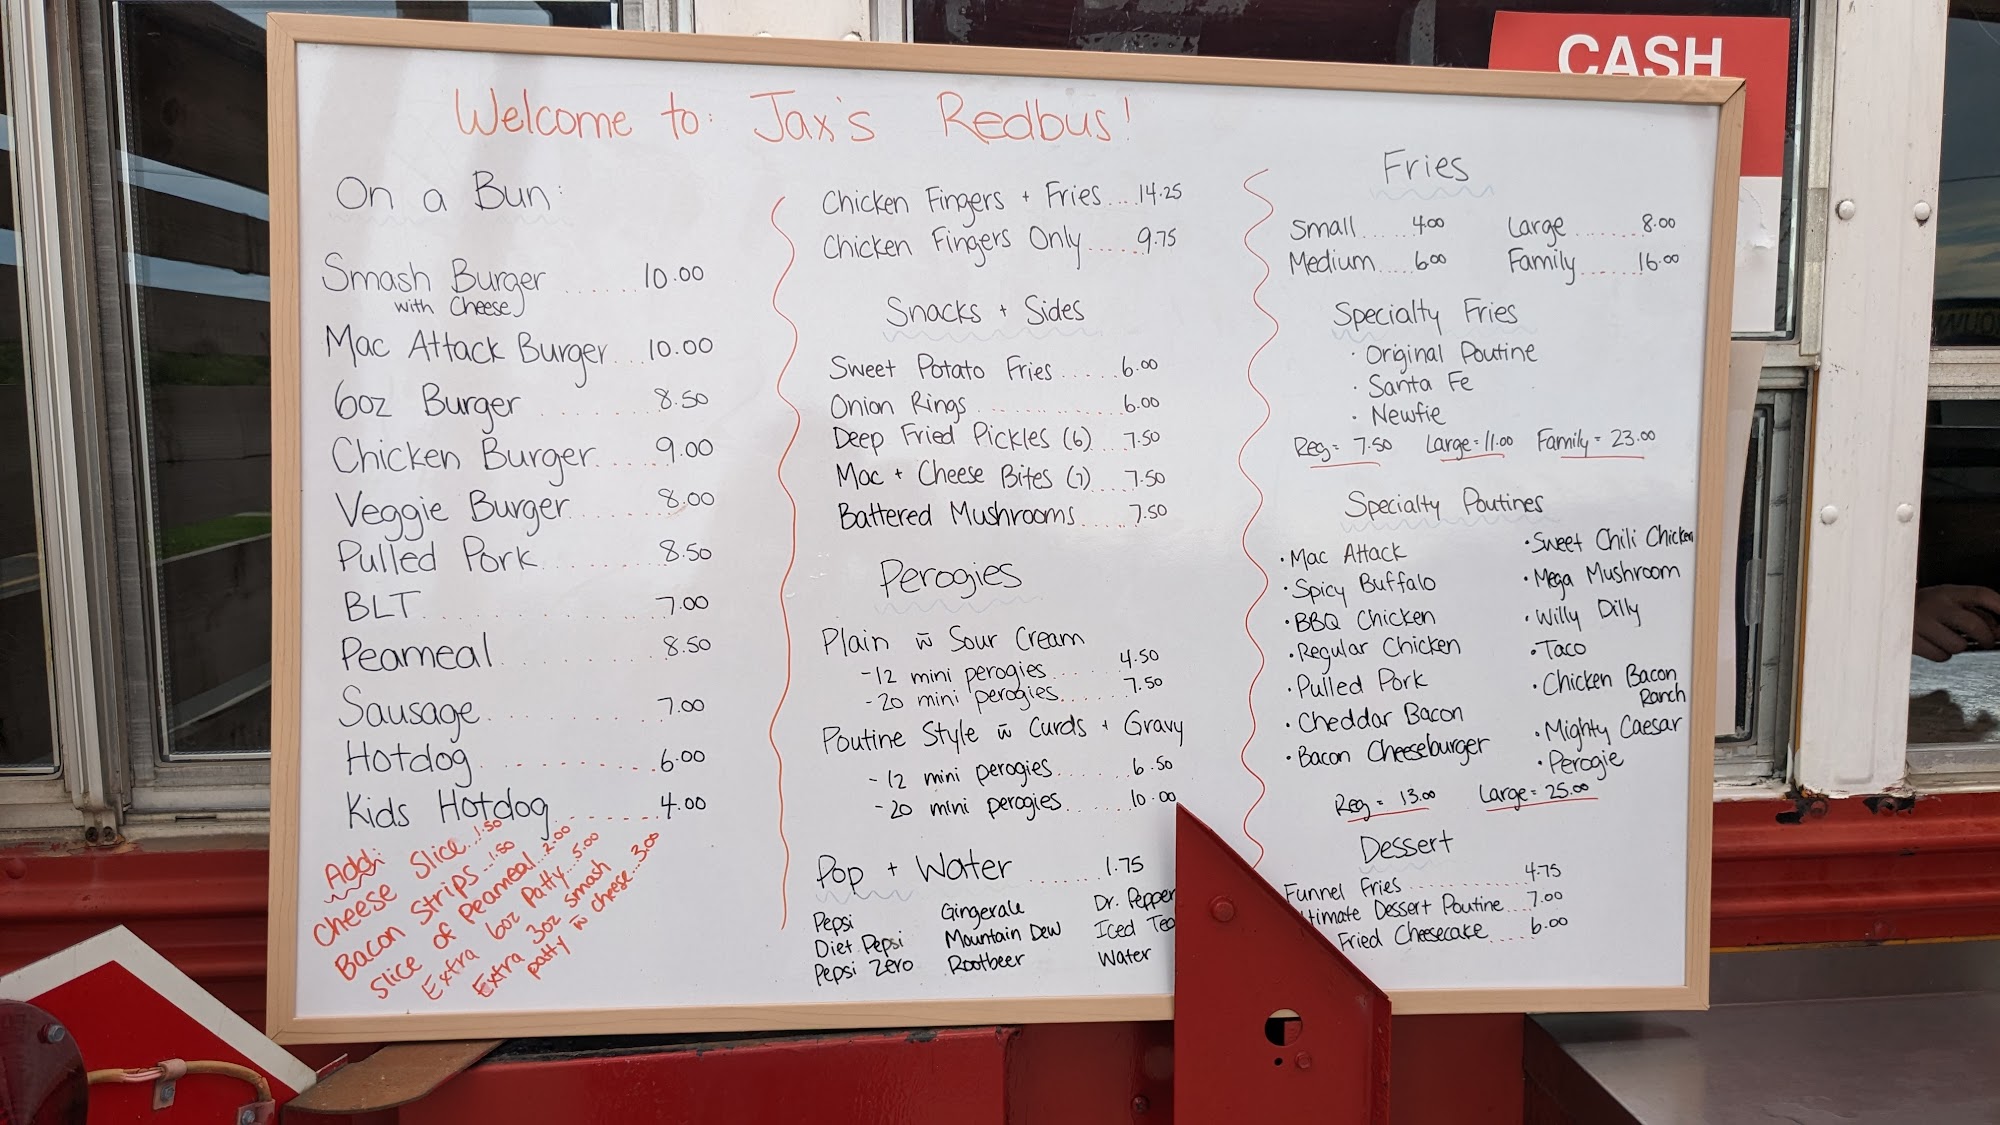 CASH
Welcome to: Jax's Redbus!
On a Bun:
Smash Burger ...... 10.00
with Cheese
Mac Attack Burger ... 10.00
6oz Burger ....... 8.50
Chicken Burger ..... 9.00
Veggie Burger ...... 8.00
Pulled Pork ....... 8.50
BLT ............ 7.00
Peameal .......... 8.50
Sausage .......... 7.00
Hotdog .......... 6.00
Kids Hotdog ....... 4.00
Add:
Cheese Slice...1.50
Bacon Strips...1.50
Slice of Peameal...2.00
Extra 6oz Patty...5.00
Extra 3oz smash
patty w̄ cheese...3.00
Chicken Fingers + Fries....14.25
Chicken Fingers Only.....9.75
Snacks + Sides
Sweet Potato Fries ...... 6.00
Onion Rings ............ 6.00
Deep Fried Pickles (6).. 7.50
Mac + Cheese Bites (7).... 7.50
Battered Mushrooms...... 7.50
Perogies
Plain w̄ Sour Cream
-12 mini perogies....... 4.50
-20 mini perogies...... 7.50
Poutine Style w̄ Curds + Gravy
-12 mini perogies....... 6.50
-20 mini perogies....... 10.00
Pop + Water ......... 1.75
Pepsi Gingerale Dr. Pepper
Diet Pepsi Mountain Dew Iced Tea
Pepsi Zero Rootbeer Water
Fries
Small ..... 4.00 Large ....... 8.00
Medium .... 6.00 Family ...... 16.00
Specialty Fries
· Original Poutine
· Santa Fe
· Newfie
Reg = 7.50 Large = 11.00 Family = 23.00
Specialty Poutines
· Mac Attack
· Spicy Buffalo
· BBQ Chicken
· Regular Chicken
· Pulled Pork
· Cheddar Bacon
· Bacon Cheeseburger
· Sweet Chili Chicken
· Mega Mushroom
· Willy Dilly
· Taco
· Chicken Bacon
Ranch
· Mighty Caesar
· Perogie
Reg = 13.00 Large = 25.00
Dessert
Funnel Fries ............ 4.75
ltimate Dessert Poutine.... 7.00
Fried Cheesecake..... 6.00